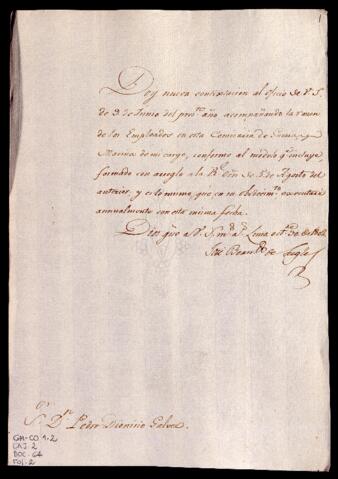 1
Doy nueva contextacion al oficio de V. S.
de 9 de Junio del pres.te año acompañando la razon
de los Empleados en esta Comisaria de Guerra y
Marina de mi cargo, conforme al modelo q.e incluye
formado con arreglo a la R.l Orn de 5 de Agosto del
anterior, y es lo mismo, que en su obedecim.to executaré
annualmente con esta misma fecha.
Dios gue. a V. S. m.s a.s Lima
de
S.or D.n Pedro Dionisio Galvez.
GM-CO 1-2
CAJ. 2
DOC. 64
FOL. 2